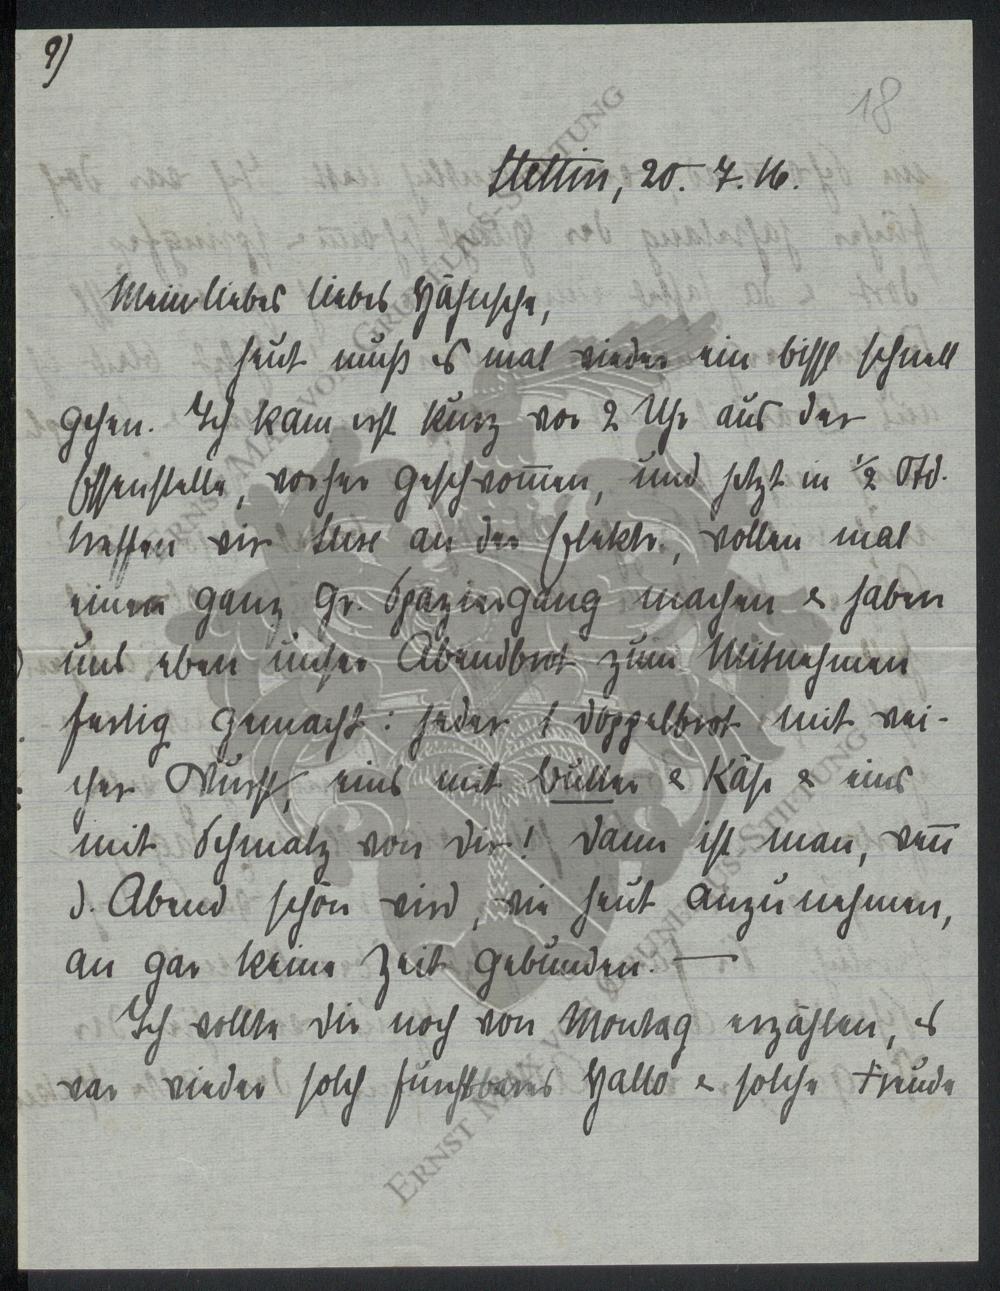 9)
18
Stettin, 20. 7. 16.
Mein liebes liebes Hähnsche,
heut muß es mal wieder ein bissl schnell
gehen. Ich kam erst kurz vor 2 Uhr aus der
Essenstelle, vorher geschwom̅en, und jetzt in ½ Std.
treffen wir Suse an der Elektr., wollen mal
einen ganz gr. Spaziergang machen & haben
uns eben unser Abendbrot zum Mitnehmen
fertig gemacht: jeder 1 Doppelbrot mit wei-
cher Wurst, eins mit Butter & Käse & eins
mit Schmalz von Dir! Dann ist man, wen̅
d. Abend schön wird, wie heut anzunehmen,
an gar keine Zeit gebunden. —
Ich wollte Dir noch von Montag erzählen, es
war wieder solch furchtbares Hallo & solche Freude
ERNST MAX VON GRUNELIUS-STIFTUNG
ERNST MAX VON GRUNELIUS-STIFTUNG